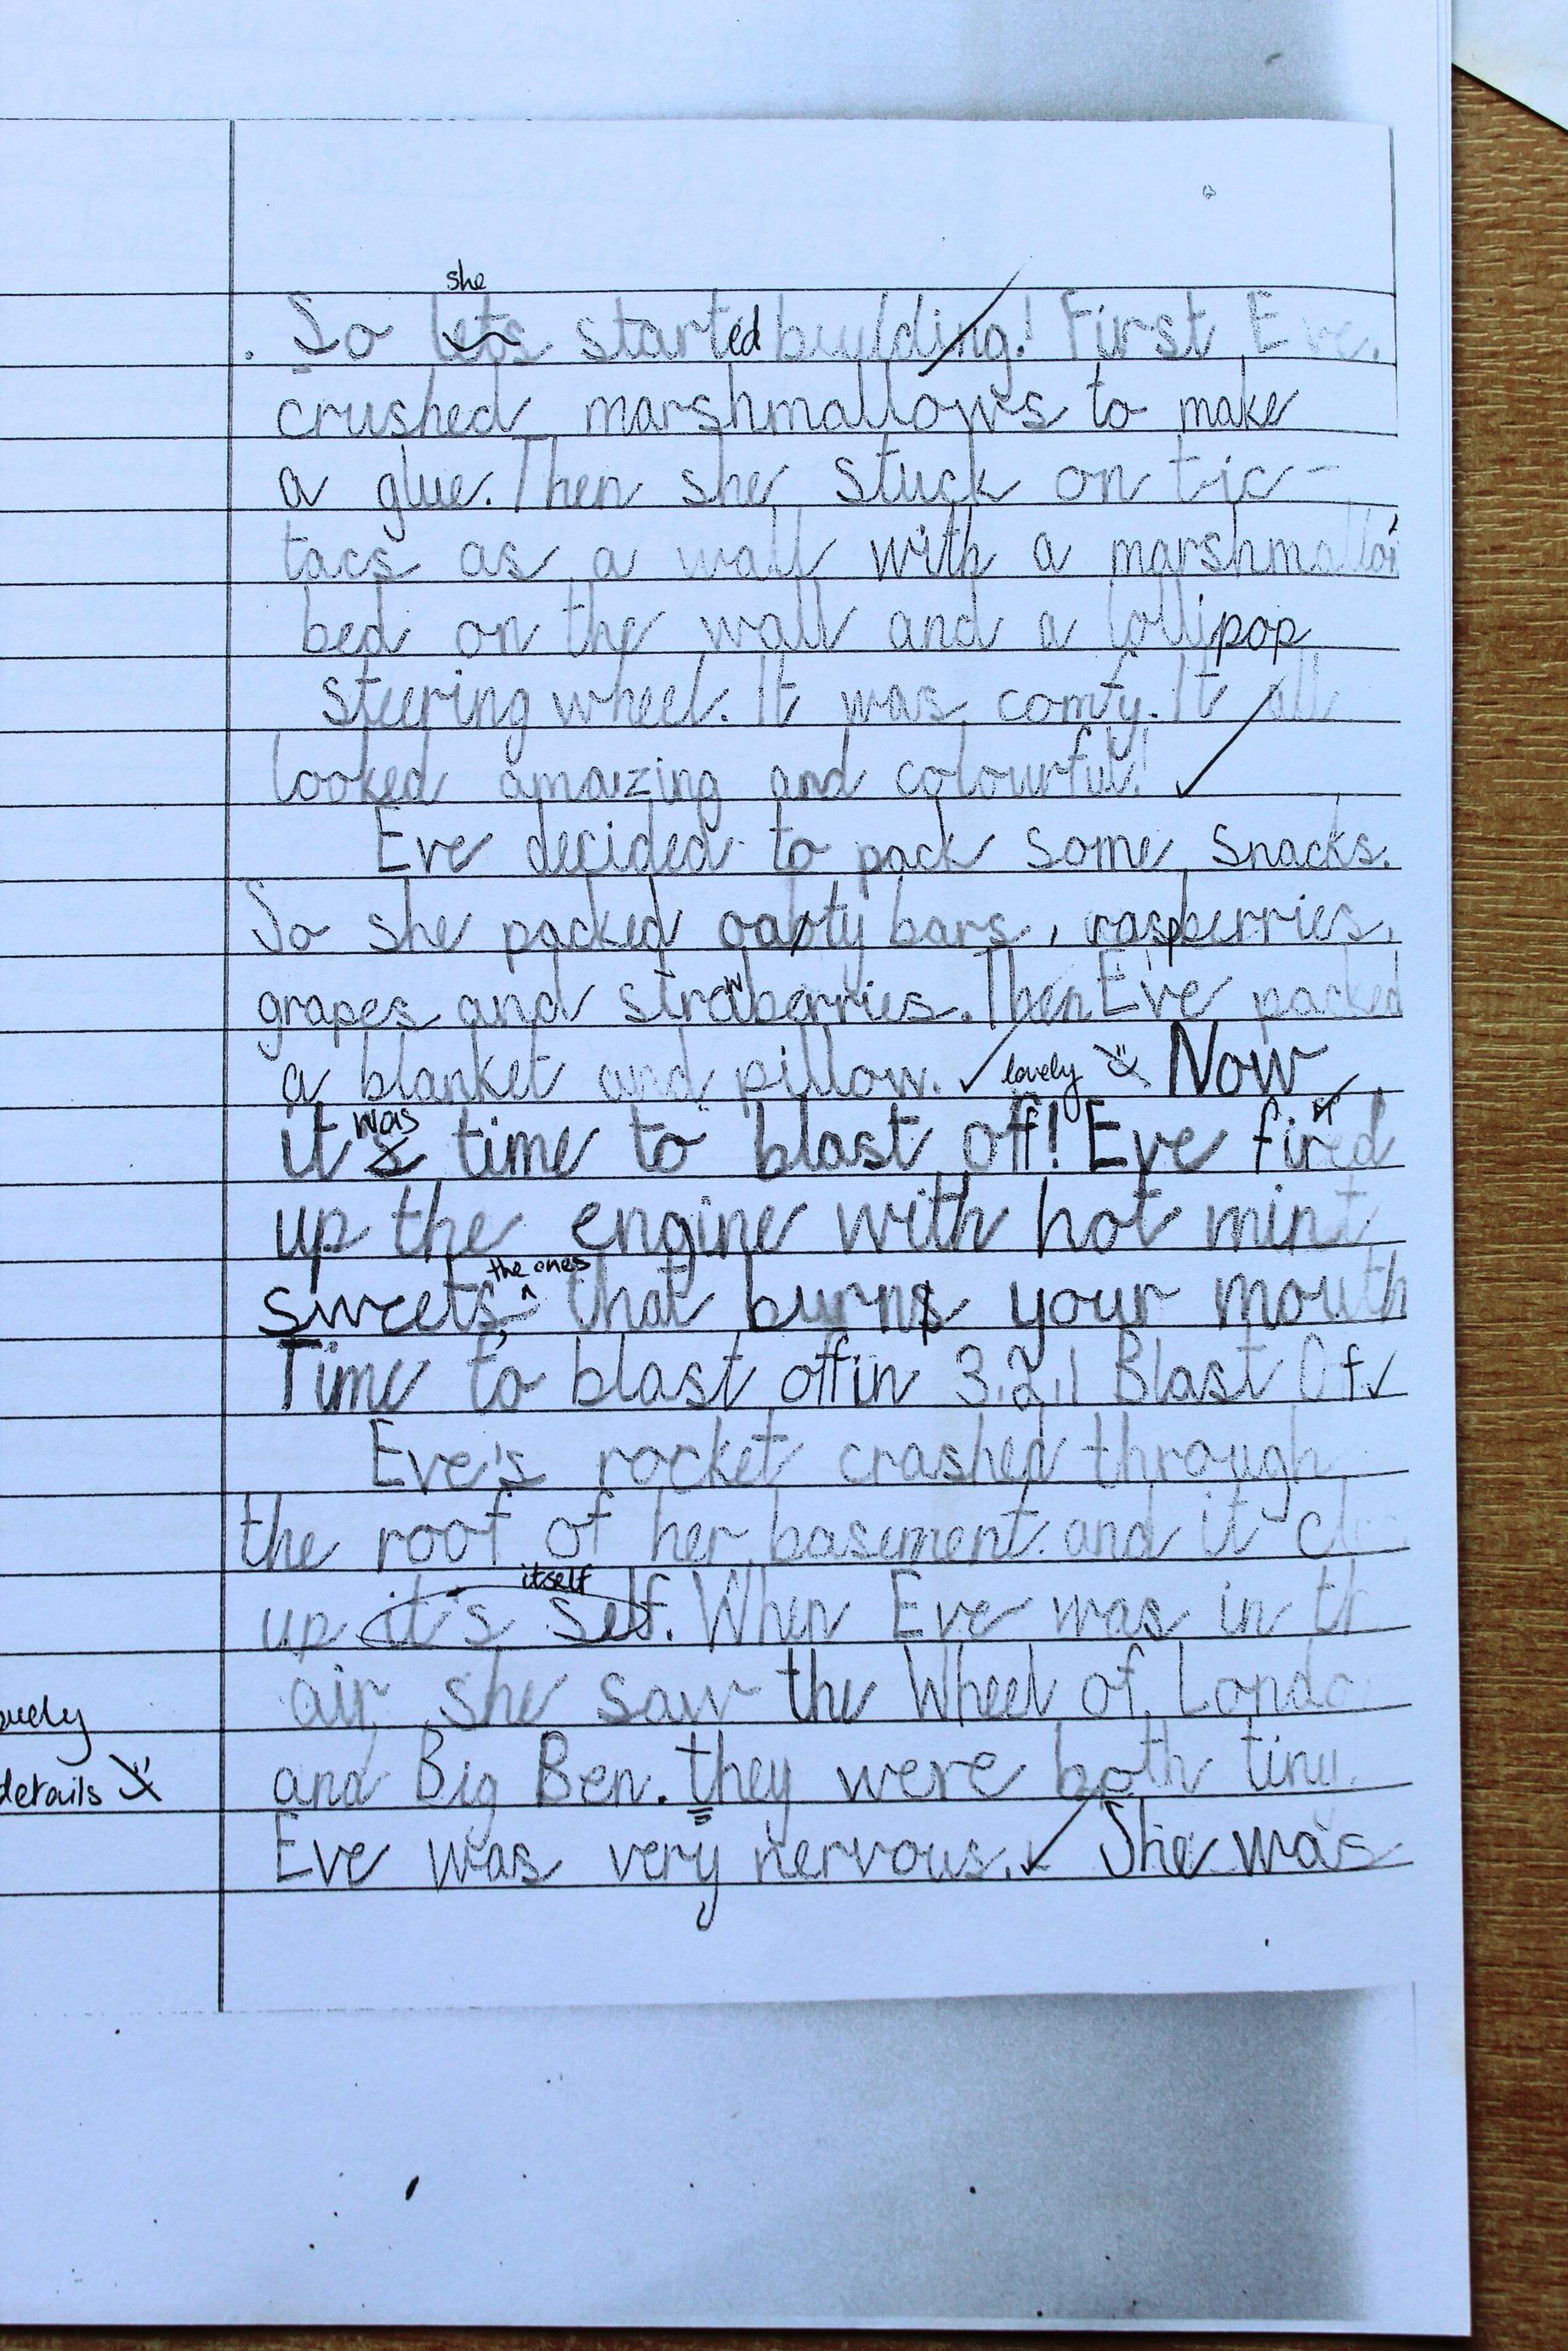 she
So lets started building! First Eve
crushed marshmallows to make
a glue. Then she stuck on tic-
tacs as a wall with a marshmallow
bed on the wall and a lollipop
steering wheel. It was comfy. It all
looked amaizing and colourful!
Eve decided to pack some snacks.
So she packed oaty bars, raspberries,
grapes and strawberries. Then Eve packed
a blanket and pillow. lovely Now
was
it's time to blast off! Eve fired
up the engine with hot mint
the ones
sweets, that burns your mouth
Time to blast off in 3.2.1 Blast Off
Eve's rocket crashed through
the roof of her basement and it
itself
up it's self. When Eve was in
air, she saw the Wheel of
and Big Ben. they were both tiny.
details
Eve was very nervous. She was